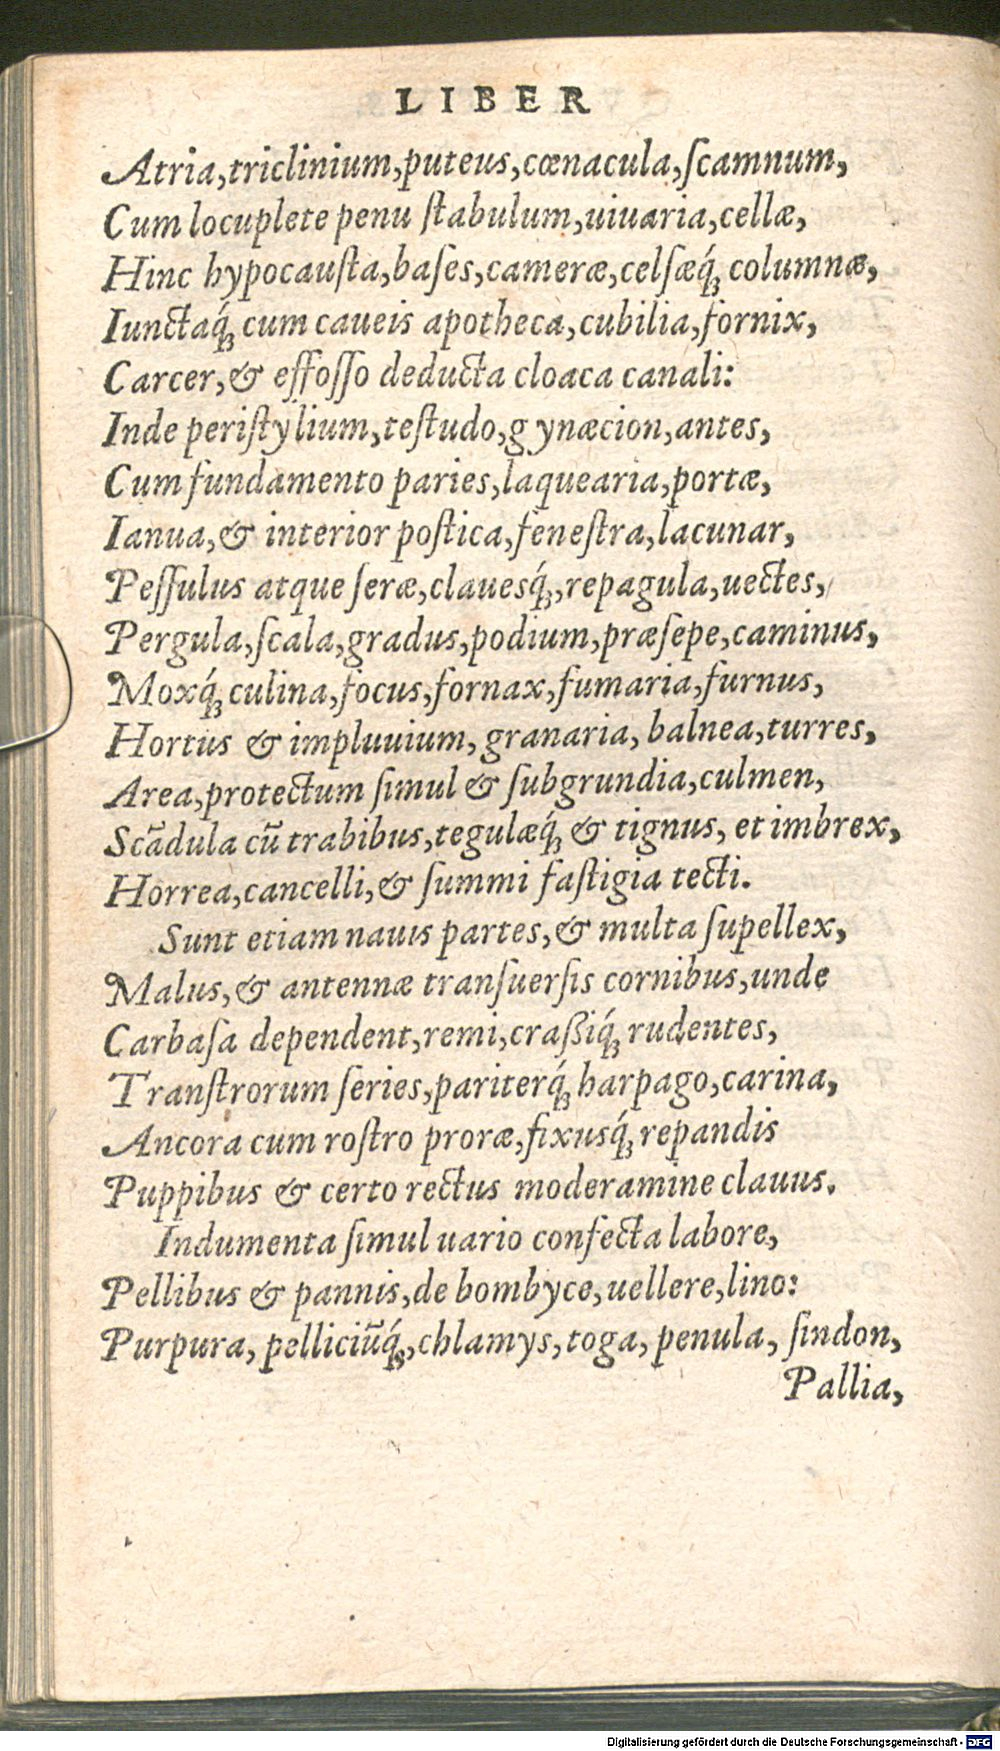 LIBER
Atria,triclinium,puteus,cœnacula,ſcamnum,
Cum locuplete penu ſtabulum,uiuaria,cellæ,
Hinc hypocauſta,baſes,cameræ,celſæq́ꝫ columnæ,
Iunctaq́ꝫ cum caueis apotheca,cubilia,fornix,
Carcer,& effoſſo deducta cloaca canali:
Inde periſtylium,teſtudo,gynæcion,antes,
Cum fundamento paries,laquearia,portæ,
Ianua,& interior poſtica,feneſtra,lacunar,
Peſſulus atque ſeræ,clauesq́ꝫ,repagula,uectes,
Pergula,ſcala,gradus,podium,præſepe,caminus,
Moxq́ꝫ culina,focus,fornax,fumaria,furnus,
Hortus & impluuium, granaria, balnea,turres,
Area,protectum ſimul & ſubgrundia,culmen,
Scādula cū trabibus,tegulæq́ꝫ & tignus, et imbrex,
Horrea,cancelli,& ſummi faſtigia tecti.
Sunt etiam nauis partes,& multa ſupellex,
Malus,& antennæ tranſuerſis cornibus,unde
Carbaſa dependent,remi,craßiq́ꝫ rudentes,
Tranſtrorum ſeries,pariterq́ꝫ harpago,carina,
Ancora cum roſtro proræ,fixusq́ꝫ repandis
Puppibus & certo rectus moderamine clauus.
Indumenta ſimul uario confecta labore,
Pellibus & pannis,de bombyce,uellere,lino:
Purpura, pelliciūq́ꝫ,chlamys,toga, penula, ſindon,
Pallia,
Digitalisierung gefördert durch die Deutsche Forschungsgemeinschaft - DFG